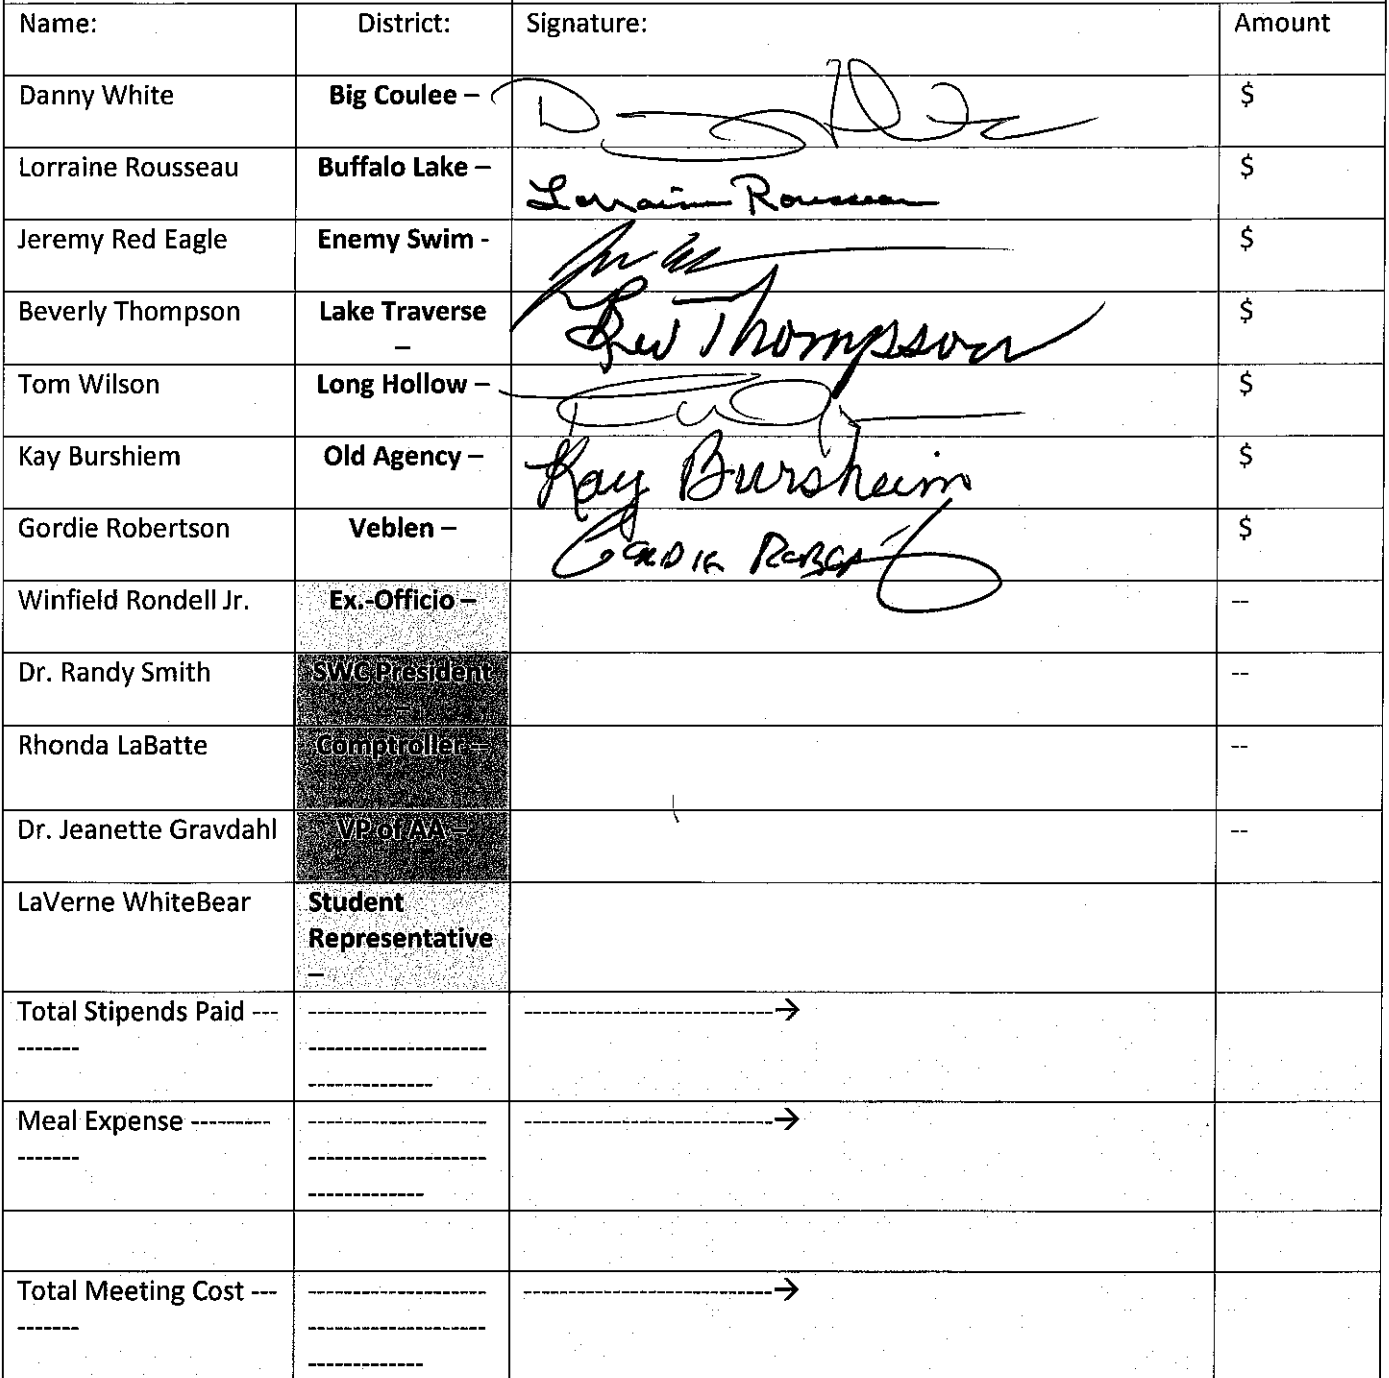 Name: District: Signature: Amount
Danny White Big Coulee – $
Lorraine Rousseau Buffalo Lake – Lorraine Rousseau $
Jeremy Red Eagle Enemy Swim - $
Beverly Thompson Lake Traverse $
– Bev Thompson
Tom Wilson Long Hollow – $
Kay Burshiem Old Agency – Kay Bursheim $
Gordie Robertson Veblen – $
Winfield Rondell Jr. Ex.-Officio – --
Dr. Randy Smith SWC President --
–
Rhonda LaBatte Comptroller – --
Dr. Jeanette Gravdahl VP of AA – --
LaVerne WhiteBear Student
Representative
–
Total Stipends Paid --- -------------------- ----------------------------→
------- --------------------
--------------
Meal Expense --------- -------------------- ----------------------------→
------- --------------------
-------------
Total Meeting Cost --- -------------------- ----------------------------→
------- --------------------
-------------